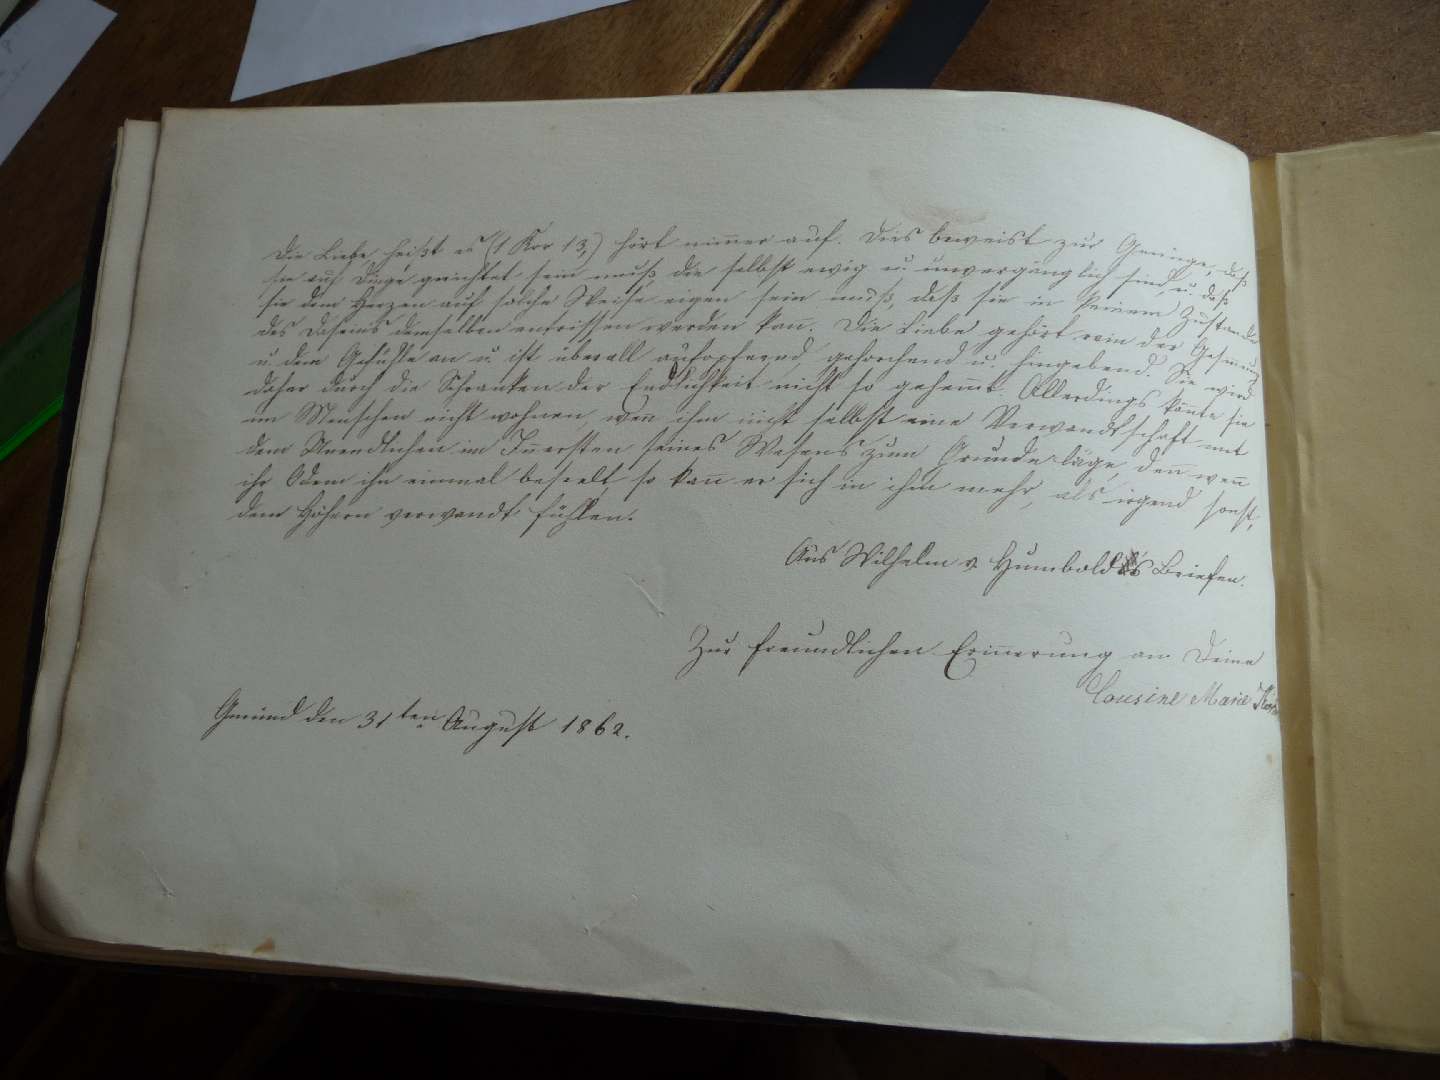 Die Liebe heißt es (1 Kor 13,) hört nimmer auf. Dies beweist zur Genüge, daß
sie auf Dinge gerichtet sein muß, die selbst ewig u. unvergänglich sind, u. daß
sie dem Herzen auf solche Weise eigen sein muß, daß sie in keinem Zustande
des Daseins demselben entrissen werden kan̅. Die Liebe gehört rein der Gesin̅ung
u. dem Gefühle an u. ist überall aufopfernd, gehorchend u. hingebend. Sie wird
daher durch die Schranken der Endlichkeit nicht so gehem̅t. Allerdings kön̅te sie
im Menschen nicht wohnen, wen̅ ihm nicht selbst eine Verwandtschaft mit
dem Unendlichen im In̅ersten seines Wesens zum Grunde läge, den̅ wen̅
ihr Odem ihn einmal beseelt, so kan̅ er sich in ihm mehr, als irgend sonst,
dem Höhern verwandt fühlen.
Aus Wilhelm v. Humboldts Briefen.
Zur freundlichen Erin̅erung an Deine
Cousine Marie
Gmünd den 31ten August 1862.